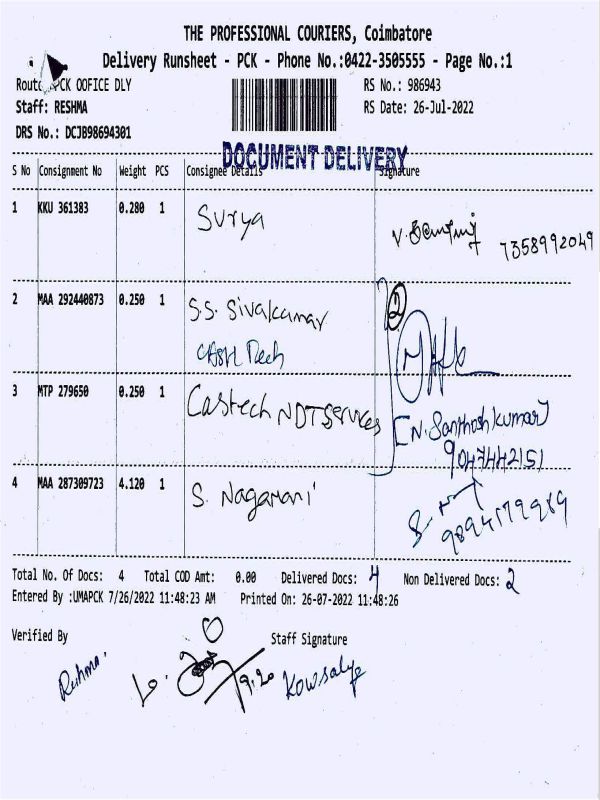 THE PROFESSIONAL COURIERS, Coimbatore
Delivery Runsheet - PCK - Phone No.:0422-3505555 - Page No.:1
PCK OOFICE DLY
RS No.: 986943
Staff: RESHMA
RS Date: 26-Jul-2022
DRS No.: DCJB98694301
DOCUMENT DELIVERY
S No Consignment No Weight PCS Consignee Details Signature
1 KKU 361383 0.280 1 Surya
V. 7358992049
2 MAA 292440873 0.250 1 S.S. Sivakumar
2
3 MTP 279650 0.250 1 Castech NDT Services
[N. Santhosh kumar]
9047442151
4 MAA 287309723 4.120 1 S. Nagamani
Total No. Of Docs: 4 Total COD Amt: 0.00 Delivered Docs: 4 Non Delivered Docs: 2
Entered By :UMAPCK 7/26/2022 11:48:23 AM Printed On: 26-07-2022 11:48:26
Verified By Staff Signature
9.20 Kowsalye